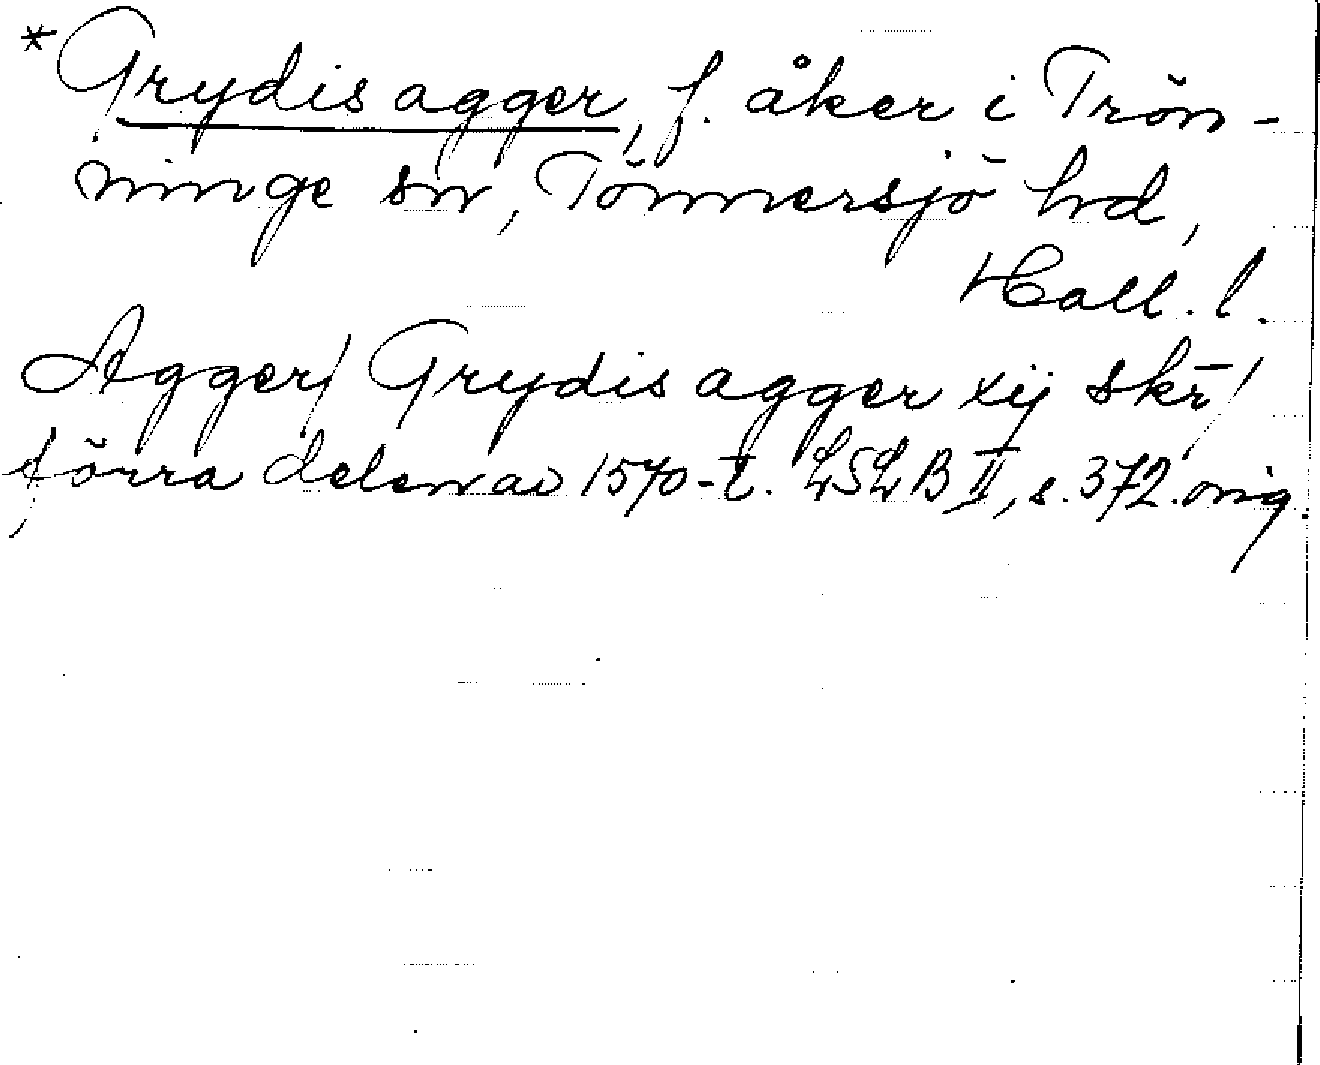 *Grydis agger, f. åker i Trön-
ninge sn, Tönnersjö hd,
Hall. l.
Agger/ Grydis agger xij skr̄/
förra delen av 1570-t. LSLB II, s. 372. orig.